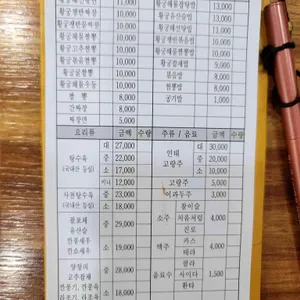 11,000
황궁쟁반짜장 10,000
황궁쟁반짬뽕 10,000
황궁해물짬뽕 10,000
황궁고추짬뽕 10,000
황궁굴짬뽕 10,000
황궁해물우동 10,000
짬 뽕 8,000
간짜장 8,000
짜장면 5,000
13,000
황궁유산슬밥 13,000
황궁해선덮밥 11,000
황궁쟁반볶음밥 11,000
황궁해물짬뽕밥 11,000
황궁잡채밥 9,000
볶음밥 8,000
짬뽕밥 8,000
공기밥 1,000
요리류 금액 수량
탕수육
(국내산 등심)
대 27,000
중 22,000
소 17,000
미니 12,000
사천탕수육
(국내산 등심)
중 23,000
소 18,000
팔보채
유산슬
깐풍새우
깐쇼새우
중 29,000
소 19,000
양장피
고추잡채
중 28,000
소 18,000
주류 / 음료 금액 수량
연태
고량주
대 30,000
중 20,000
소 10,000
고량주 5,000
이과두주 3,000
소주
참이슬
처음처럼
진로
4,000
맥주
카스
테라
4,000
음료수
콜라
사이다
환타
1,500